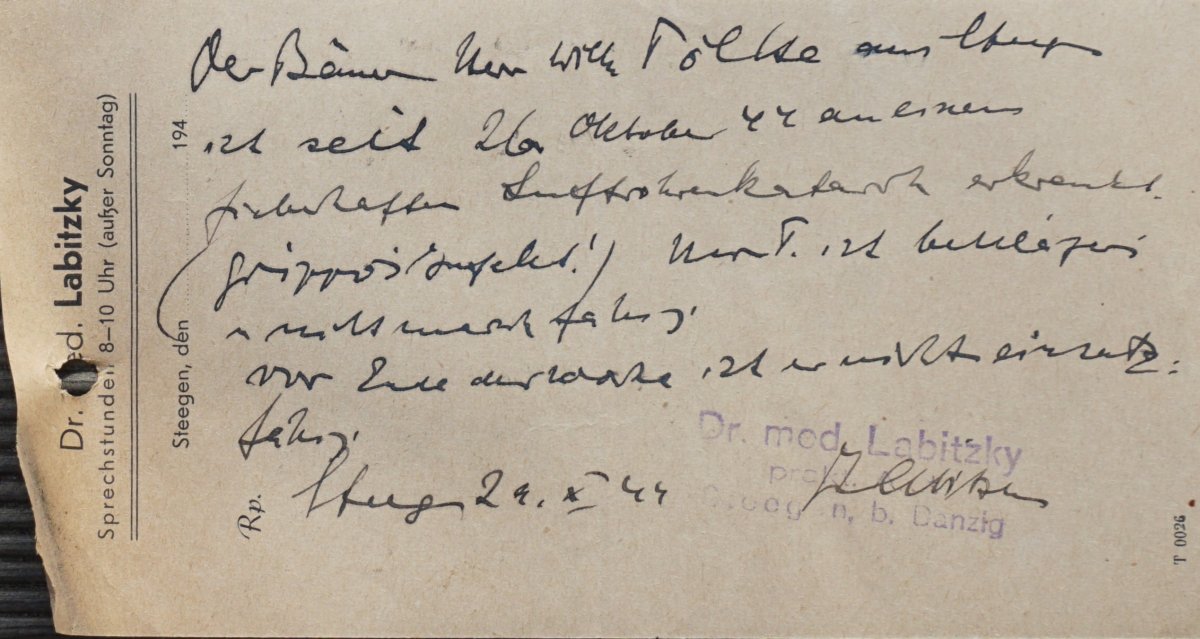 Dr. med. Labitzky
Sprechstunden 8–10 Uhr (außer Sonntag)
Steegen, den 194
Rp.
Der Bauer Herr Wilh. Tölke aus Steegen
ist seit 26. Oktober 44 an einem
fieberhaften Luftröhrenkatarrh erkrankt
(grippös Infekt!) Herr T. ist bettlägerig
u nicht marschfähig.
Vor Ende der Woche ist er nicht einsatz-
fähig.
Steegen 29. X 44
Dr. med. Labitzky
prakt.
Steegen, b. Danzig
T 0026